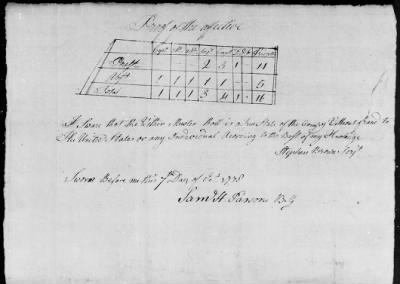 Proof of the effective
Capt 1 Lt 2 Lt
Present 2 5 1 11
Abst 1 1 1 1 1 - 5
Total 1 1 1 3 4 1 - 16
I Swear that the Within Muster Roll is a true State of the Company Without fraud to
the United States or any Individual According to the Best of my Knowledge
Stephen Brown Serjt
Sworn Before me this 7th Day of 1778
Saml H Parsons B.G